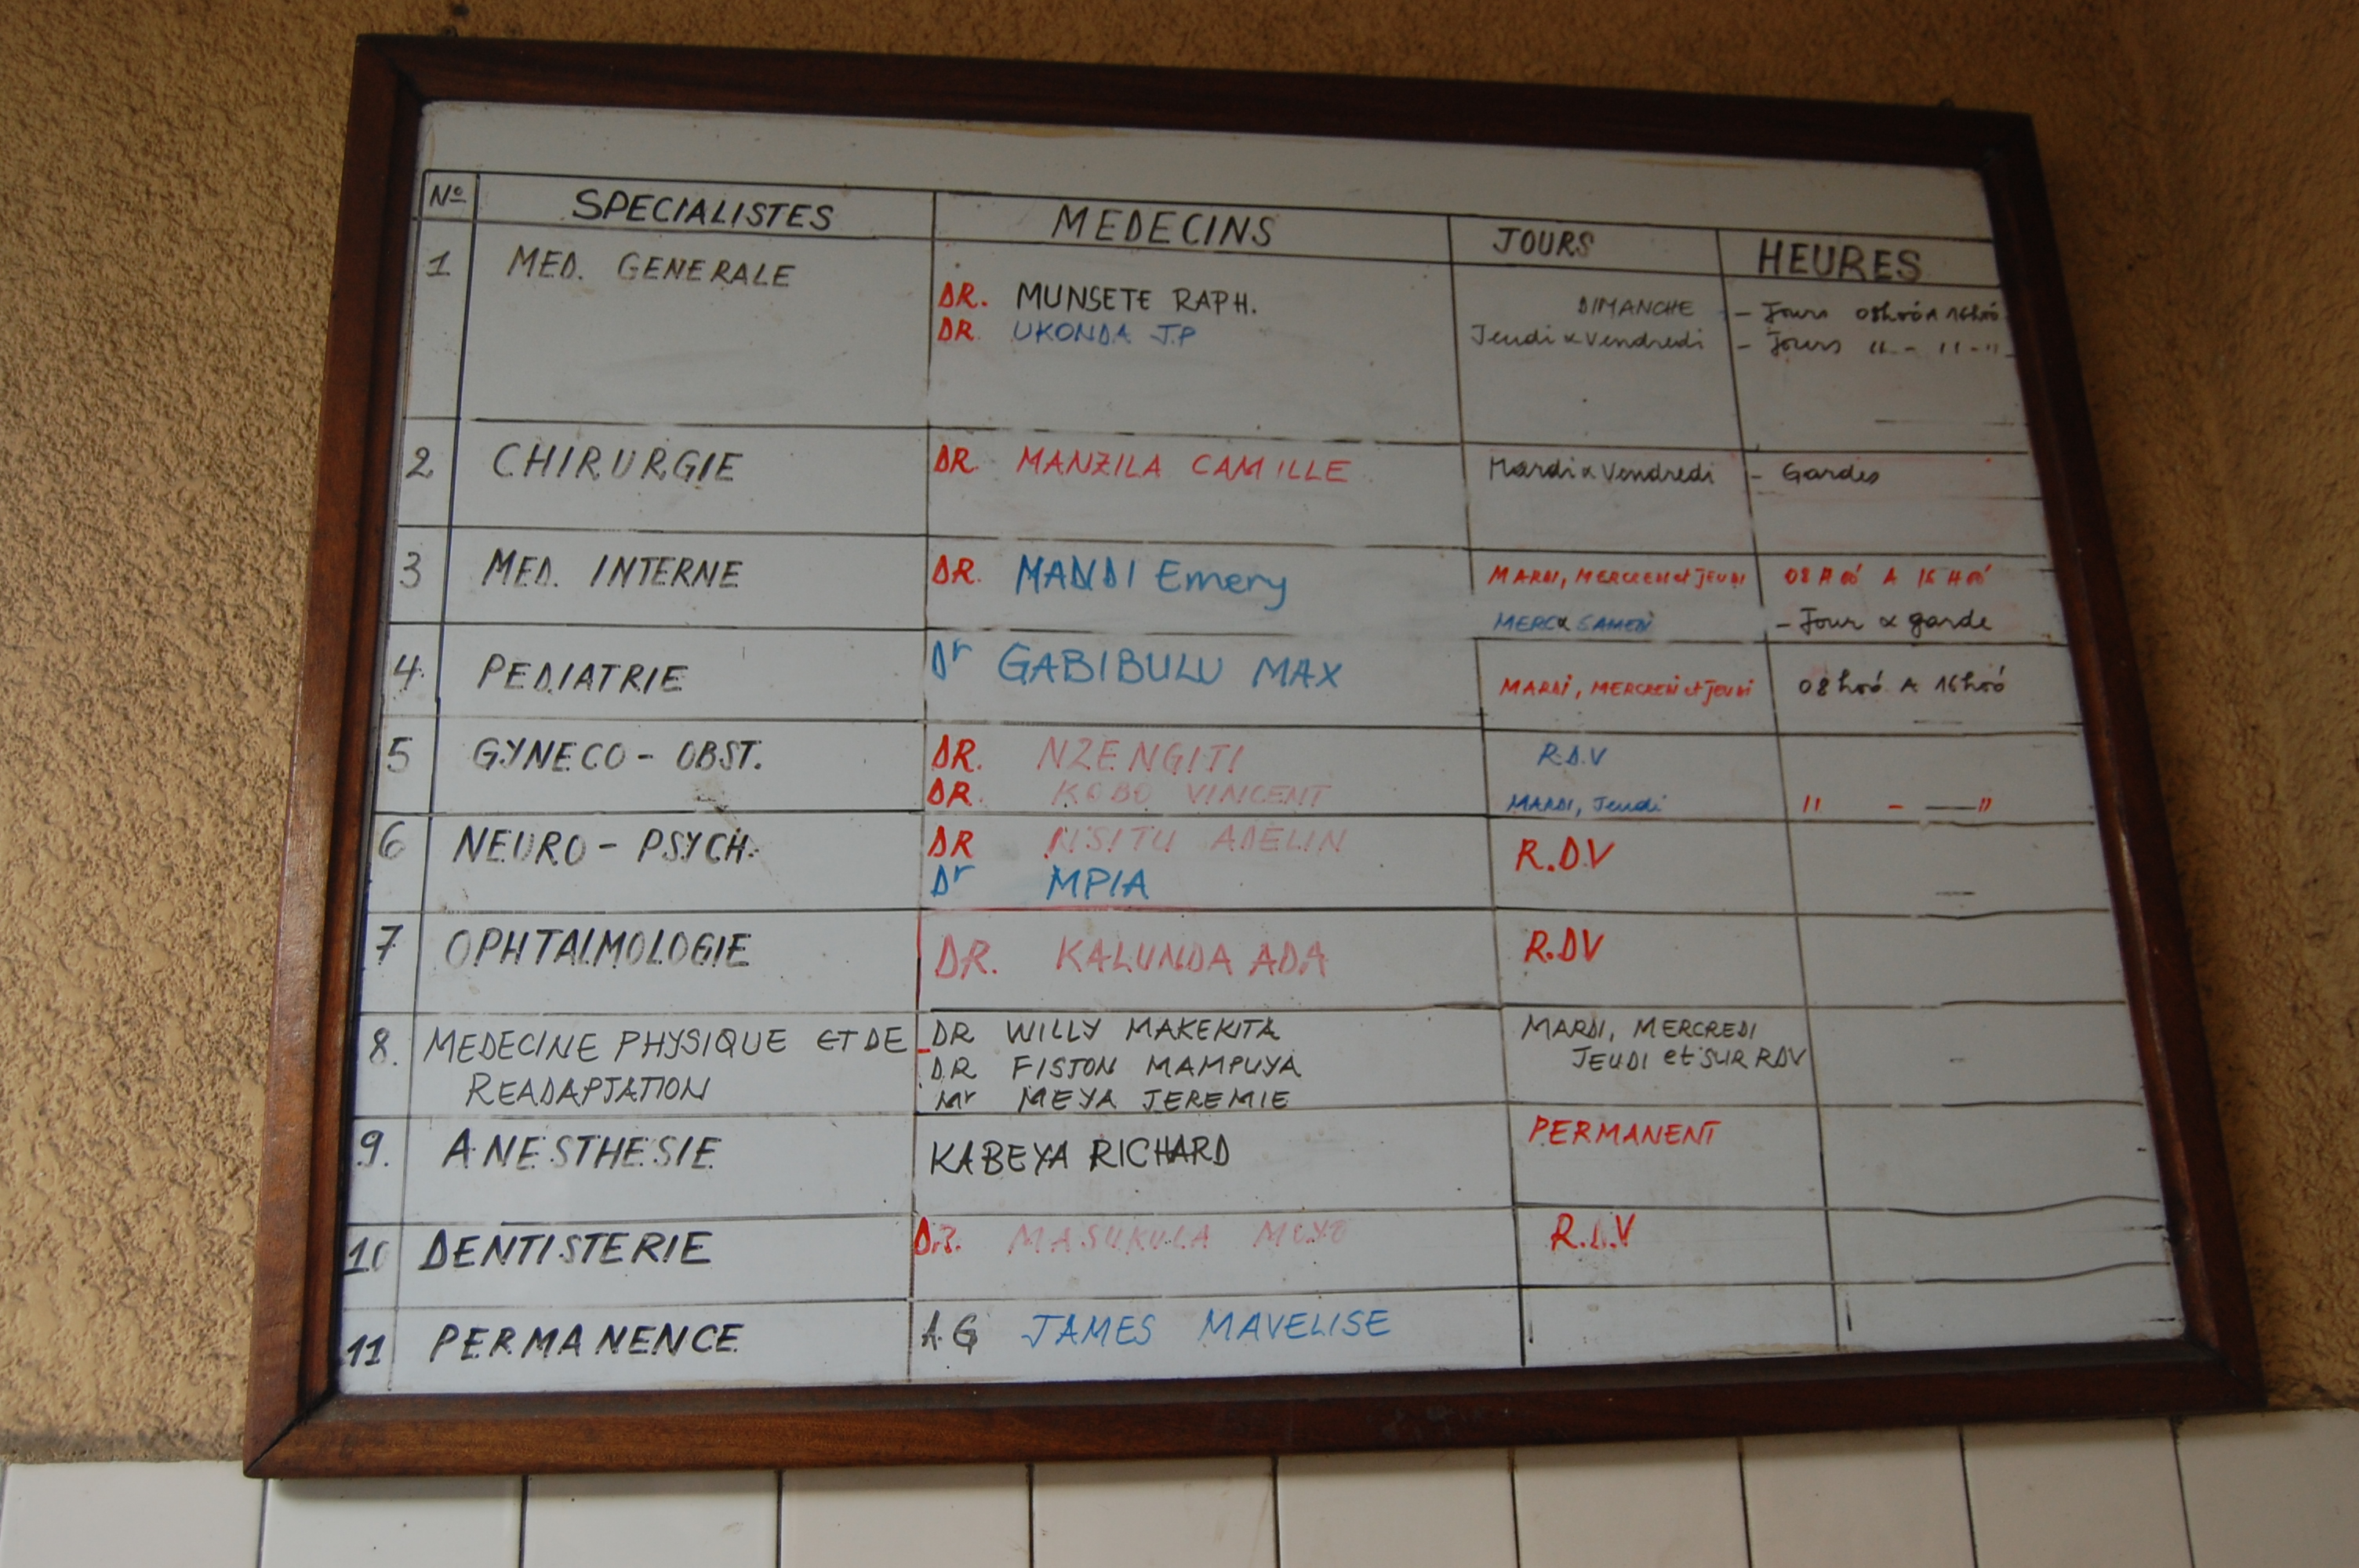 Nº SPECIALISTES MEDECINS JOURS HEURES
1 MED. GENERALE
DR. MUNSETE RAPH. DIMANCHE - Jours 08h00 A 16h00
DR. UKONDA J.P Jeudi & Vendredi - Jours 11 - 11 - 11
2 CHIRURGIE DR. MANZILA CAMILLE Mardi & Vendredi - Gardes
3 MED. INTERNE DR. MANDI Emery MARDI, MERCREDI et JEUDI 08H00 A 16H00
MERC & SAMEDI - Jour & garde
4 PEDIATRIE Dr GABIBULU MAX MARDI, MERCREDI et JEUDI 08h00 A 16h00
5 GYNECO - OBST. DR. NZENGITI R.D.V
DR. KOBO VINCENT MARDI, Jeudi 11 - 11
6 NEURO - PSYCH. DR NSITU ADELIN R.D.V
Dr MPIA
7 OPHTALMOLOGIE DR. KALUNDA ADA R.DV
8. MEDECINE PHYSIQUE ET DE DR WILLY MAKEKITA MARDI, MERCREDI
READAPTATION DR FISTON MAMPUYA JEUDI et SUR RDV
Mr MEYA JEREMIE
9. ANESTHESIE KABEYA RICHARD PERMANENT
10 DENTISTERIE DR. MASUKULA MOYO R.D.V
11 PERMANENCE A.G JAMES MAVELISE